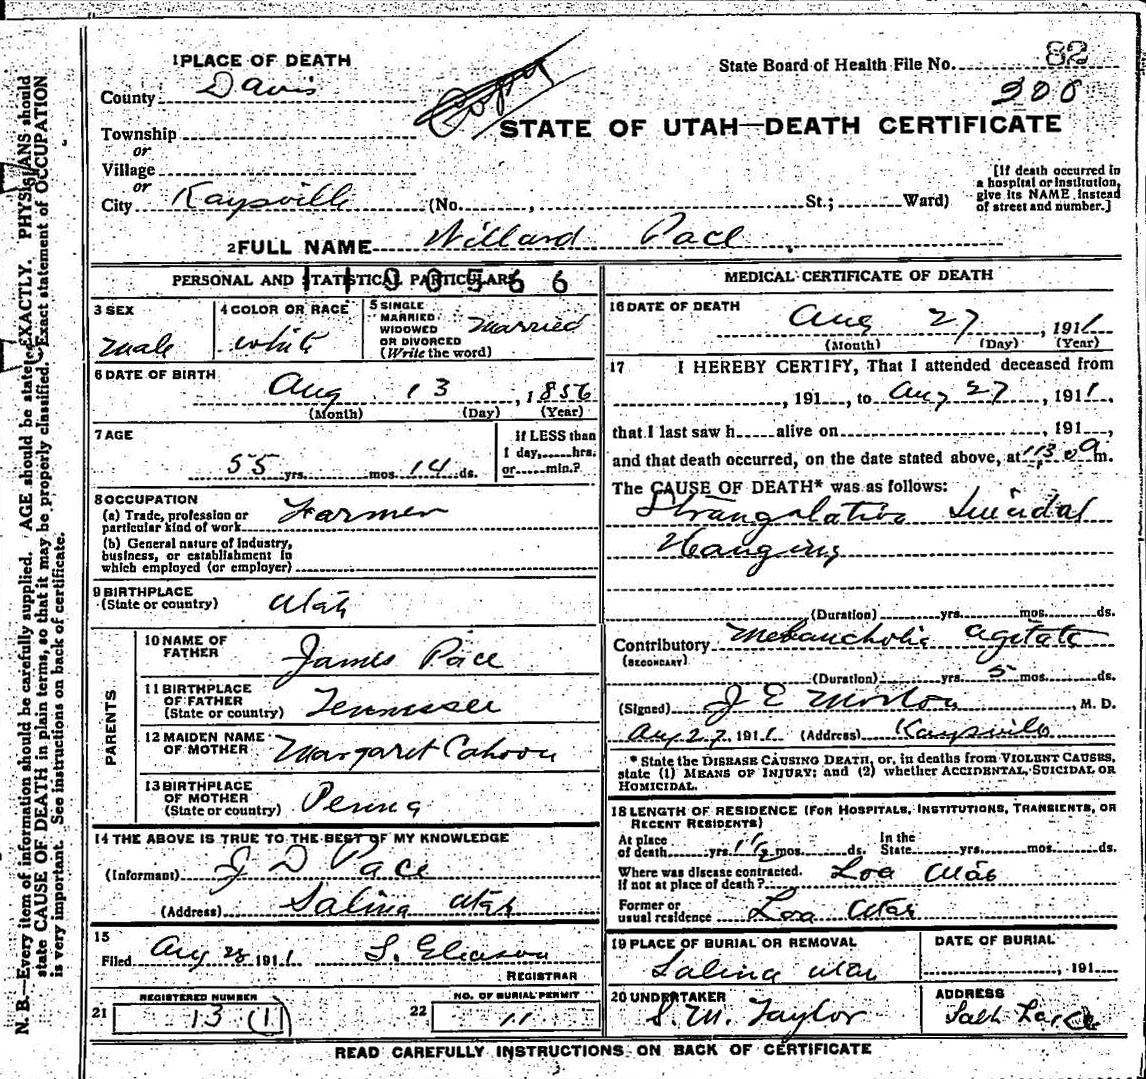 1 PLACE OF DEATH
County Davis
Township
or
Village
or
City Kaysville (No. , St.; Ward)
Copy
State Board of Health File No. 82
200
STATE OF UTAH—DEATH CERTIFICATE
[If death occurred in
a hospital or institution,
give its NAME instead
of street and number.]
2 FULL NAME Willard Pace
PERSONAL AND STATISTICAL PARTICULARS
3 SEX
male
4 COLOR OR RACE
white
5 SINGLE
MARRIED
WIDOWED
OR DIVORCED
(Write the word)
Married
6 DATE OF BIRTH
Aug 13, 1856
(Month) (Day) (Year)
7 AGE
55 yrs. mos. 14 ds.
If LESS than
1 day, hrs.
or min.?
8 OCCUPATION
(a) Trade, profession or
particular kind of work
Farmer
(b) General nature of industry,
business, or establishment in
which employed (or employer)
9 BIRTHPLACE
(State or country)
Utah
PARENTS
10 NAME OF
FATHER
James Pace
11 BIRTHPLACE
OF FATHER
(State or country)
Tennessee
12 MAIDEN NAME
OF MOTHER
Margaret Cahoon
13 BIRTHPLACE
OF MOTHER
(State or country)
14 THE ABOVE IS TRUE TO THE BEST OF MY KNOWLEDGE
(Informant) J D Pace
(Address) Salina Utah
15
Filed Aug 28 1911 S. Gleason
REGISTRAR
21 REGISTERED NUMBER
13 (1)
22 NO. OF BURIAL PERMIT
11
MEDICAL CERTIFICATE OF DEATH
16 DATE OF DEATH
Aug 27, 1911
(Month) (Day) (Year)
17 I HEREBY CERTIFY, That I attended deceased from
, 191 , to Aug 27, 1911,
that I last saw h alive on , 191 ,
and that death occurred, on the date stated above, at m.
The CAUSE OF DEATH* was as follows:
Strangulation Suicidal
Hanging
(Duration) yrs. mos. ds.
Contributory Melancholia agitata
(SECONDARY)
(Duration) yrs. 5 mos. ds.
(Signed) J E Morton, M. D.
Aug 27, 1911 (Address) Kaysville
* State the DISEASE CAUSING DEATH, or, in deaths from VIOLENT CAUSES,
state (1) MEANS OF INJURY; and (2) whether ACCIDENTAL, SUICIDAL OR
HOMICIDAL.
18 LENGTH OF RESIDENCE (FOR HOSPITALS, INSTITUTIONS, TRANSIENTS, OR
RECENT RESIDENTS)
At place
of death yrs. mos. ds.
In the
State yrs. mos. ds.
Where was disease contracted.
If not at place of death? Loa Utah
Former or
usual residence Loa Utah
19 PLACE OF BURIAL OR REMOVAL
Salina Utah
DATE OF BURIAL
, 191
20 UNDERTAKER
S. M. Taylor
ADDRESS
Salt Lake
READ CAREFULLY INSTRUCTIONS ON BACK OF CERTIFICATE
N. B.—Every item of information should be carefully supplied. AGE should be stated EXACTLY. PHYSICIANS should
state CAUSE OF DEATH in plain terms, so that it may be properly classified. Exact statement of OCCUPATION
is very important. See instructions on back of certificate.